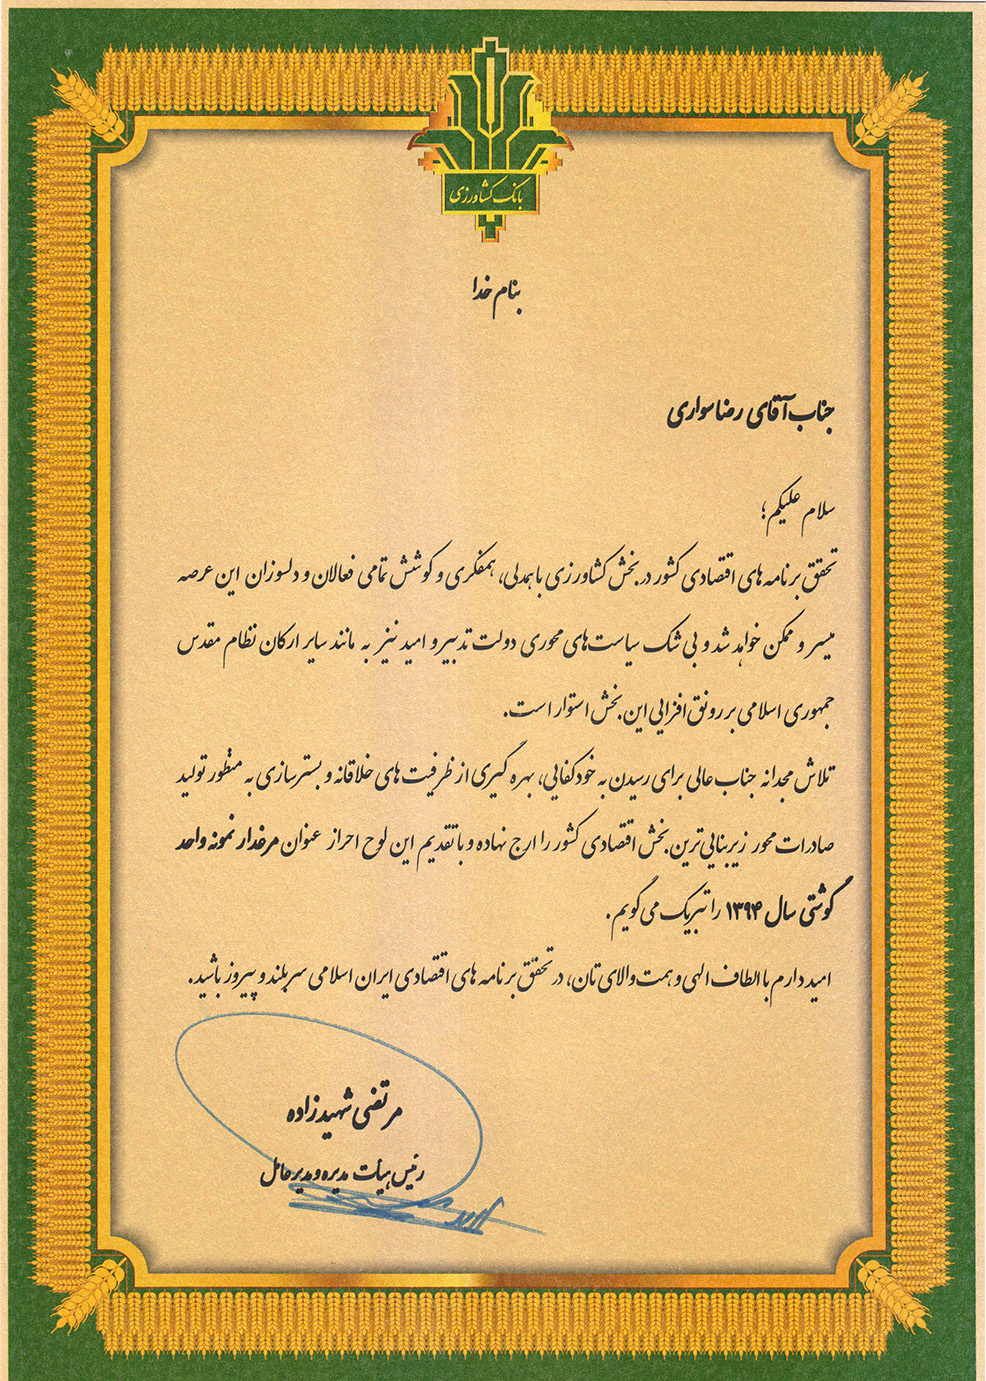 بانک کشاورزی
بنام خدا
جناب آقای رضا سواری
سلام علیکم؛
تحقق برنامه های اقتصادی کشور در بخش کشاورزی با همدلی، همفکری و کوشش تمامی فعالان و دلسوزان این عرصه
میسر و ممکن خواهد شد و بی شک سیاست های محوری دولت تدبیر و امید نیز به مانند سایر ارکان نظام مقدس
جمهوری اسلامی بر رونق افزایی این بخش استوار است.
تلاش مجدانه جناب عالی برای رسیدن به خودکفایی، بهره گیری از ظرفیت های خلاقانه و بسترسازی به منظور تولید
صادرات محور زیربنایی ترین بخش اقتصادی کشور را ارج نهاده و با تقدیم این لوح احراز عنوان مرغدار نمونه واحد
گوشتی سال ۱۳۹۴ را تبریک می گویم.
امید دارم با الطاف الهی و همت والای تان، در تحقق برنامه های اقتصادی ایران اسلامی سربلند و پیروز باشید.
مرتضی شهیدزاده
رئیس هیأت مدیره و مدیرعامل